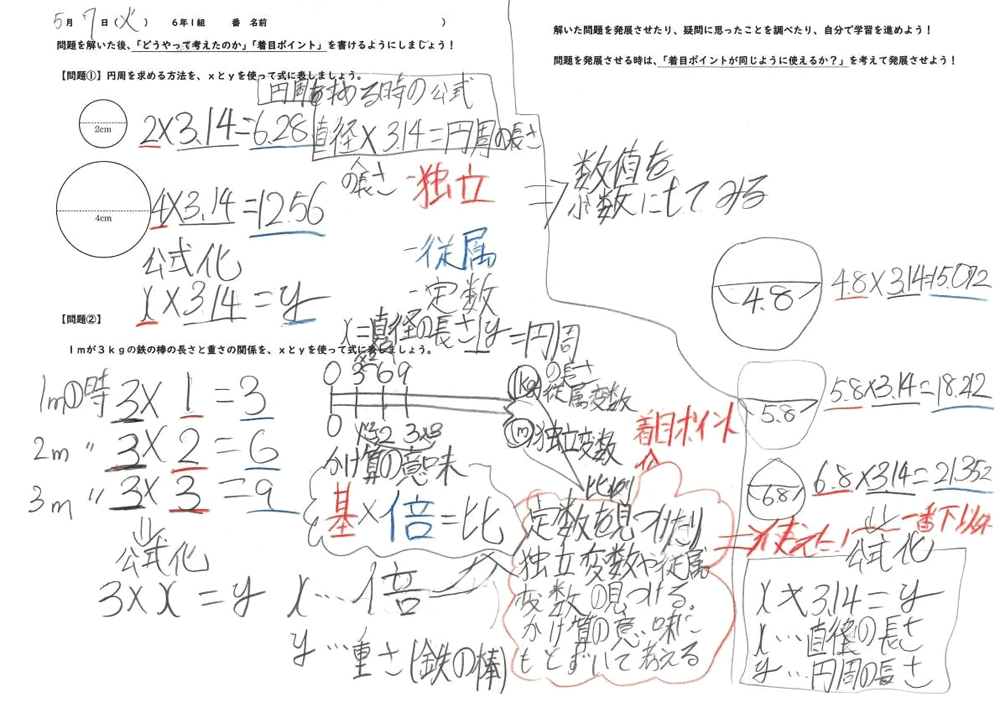 5月 7日（火） 6年1組 番 名前 ）
問題を解いた後、「どうやって考えたのか」「着目ポイント」を書けるようにしましょう！
【問題①】円周を求める方法を、xとyを使って式に表しましょう。
円周を求める時の公式
直径×3.14=円周の長さ
の長さ
2cm
2×3.14=6.28
4cm
4×3.14=12.56
-独立
-従属
-定数
公式化
x×3.14=y
x=直径の長さ y=円周の長さ
【問題②】
1mが3kgの鉄の棒の長さと重さの関係を、xとyを使って式に表しましょう。
1mの時 3×1=3
2m 〃 3×2=6
3m 〃 3×3=9
公式化
3×x=y
x…倍
y…重さ(鉄の棒)
0 3 6 9
(kg)従属変数
0 1 2 3
(m)独立変数
比例
かけ算の意味
基×倍=比
着目ポイント
定数を見つけたり
独立変数や従属
変数の見つける。
かけ算の意味に
もとずいて考える
⇒使えた!
解いた問題を発展させたり、疑問に思ったことを調べたり、自分で学習を進めよう！
問題を発展させる時は、「着目ポイントが同じように使えるか？」を考えて発展させよう！
⇒数値を
小数にしてみる
4.8
4.8×3.14=15.072
5.8
5.8×3.14=18.212
6.8
6.8×3.14=21.352
一番下以外
公式化
x×3.14=y
x…直径の長さ
y…円周の長さ